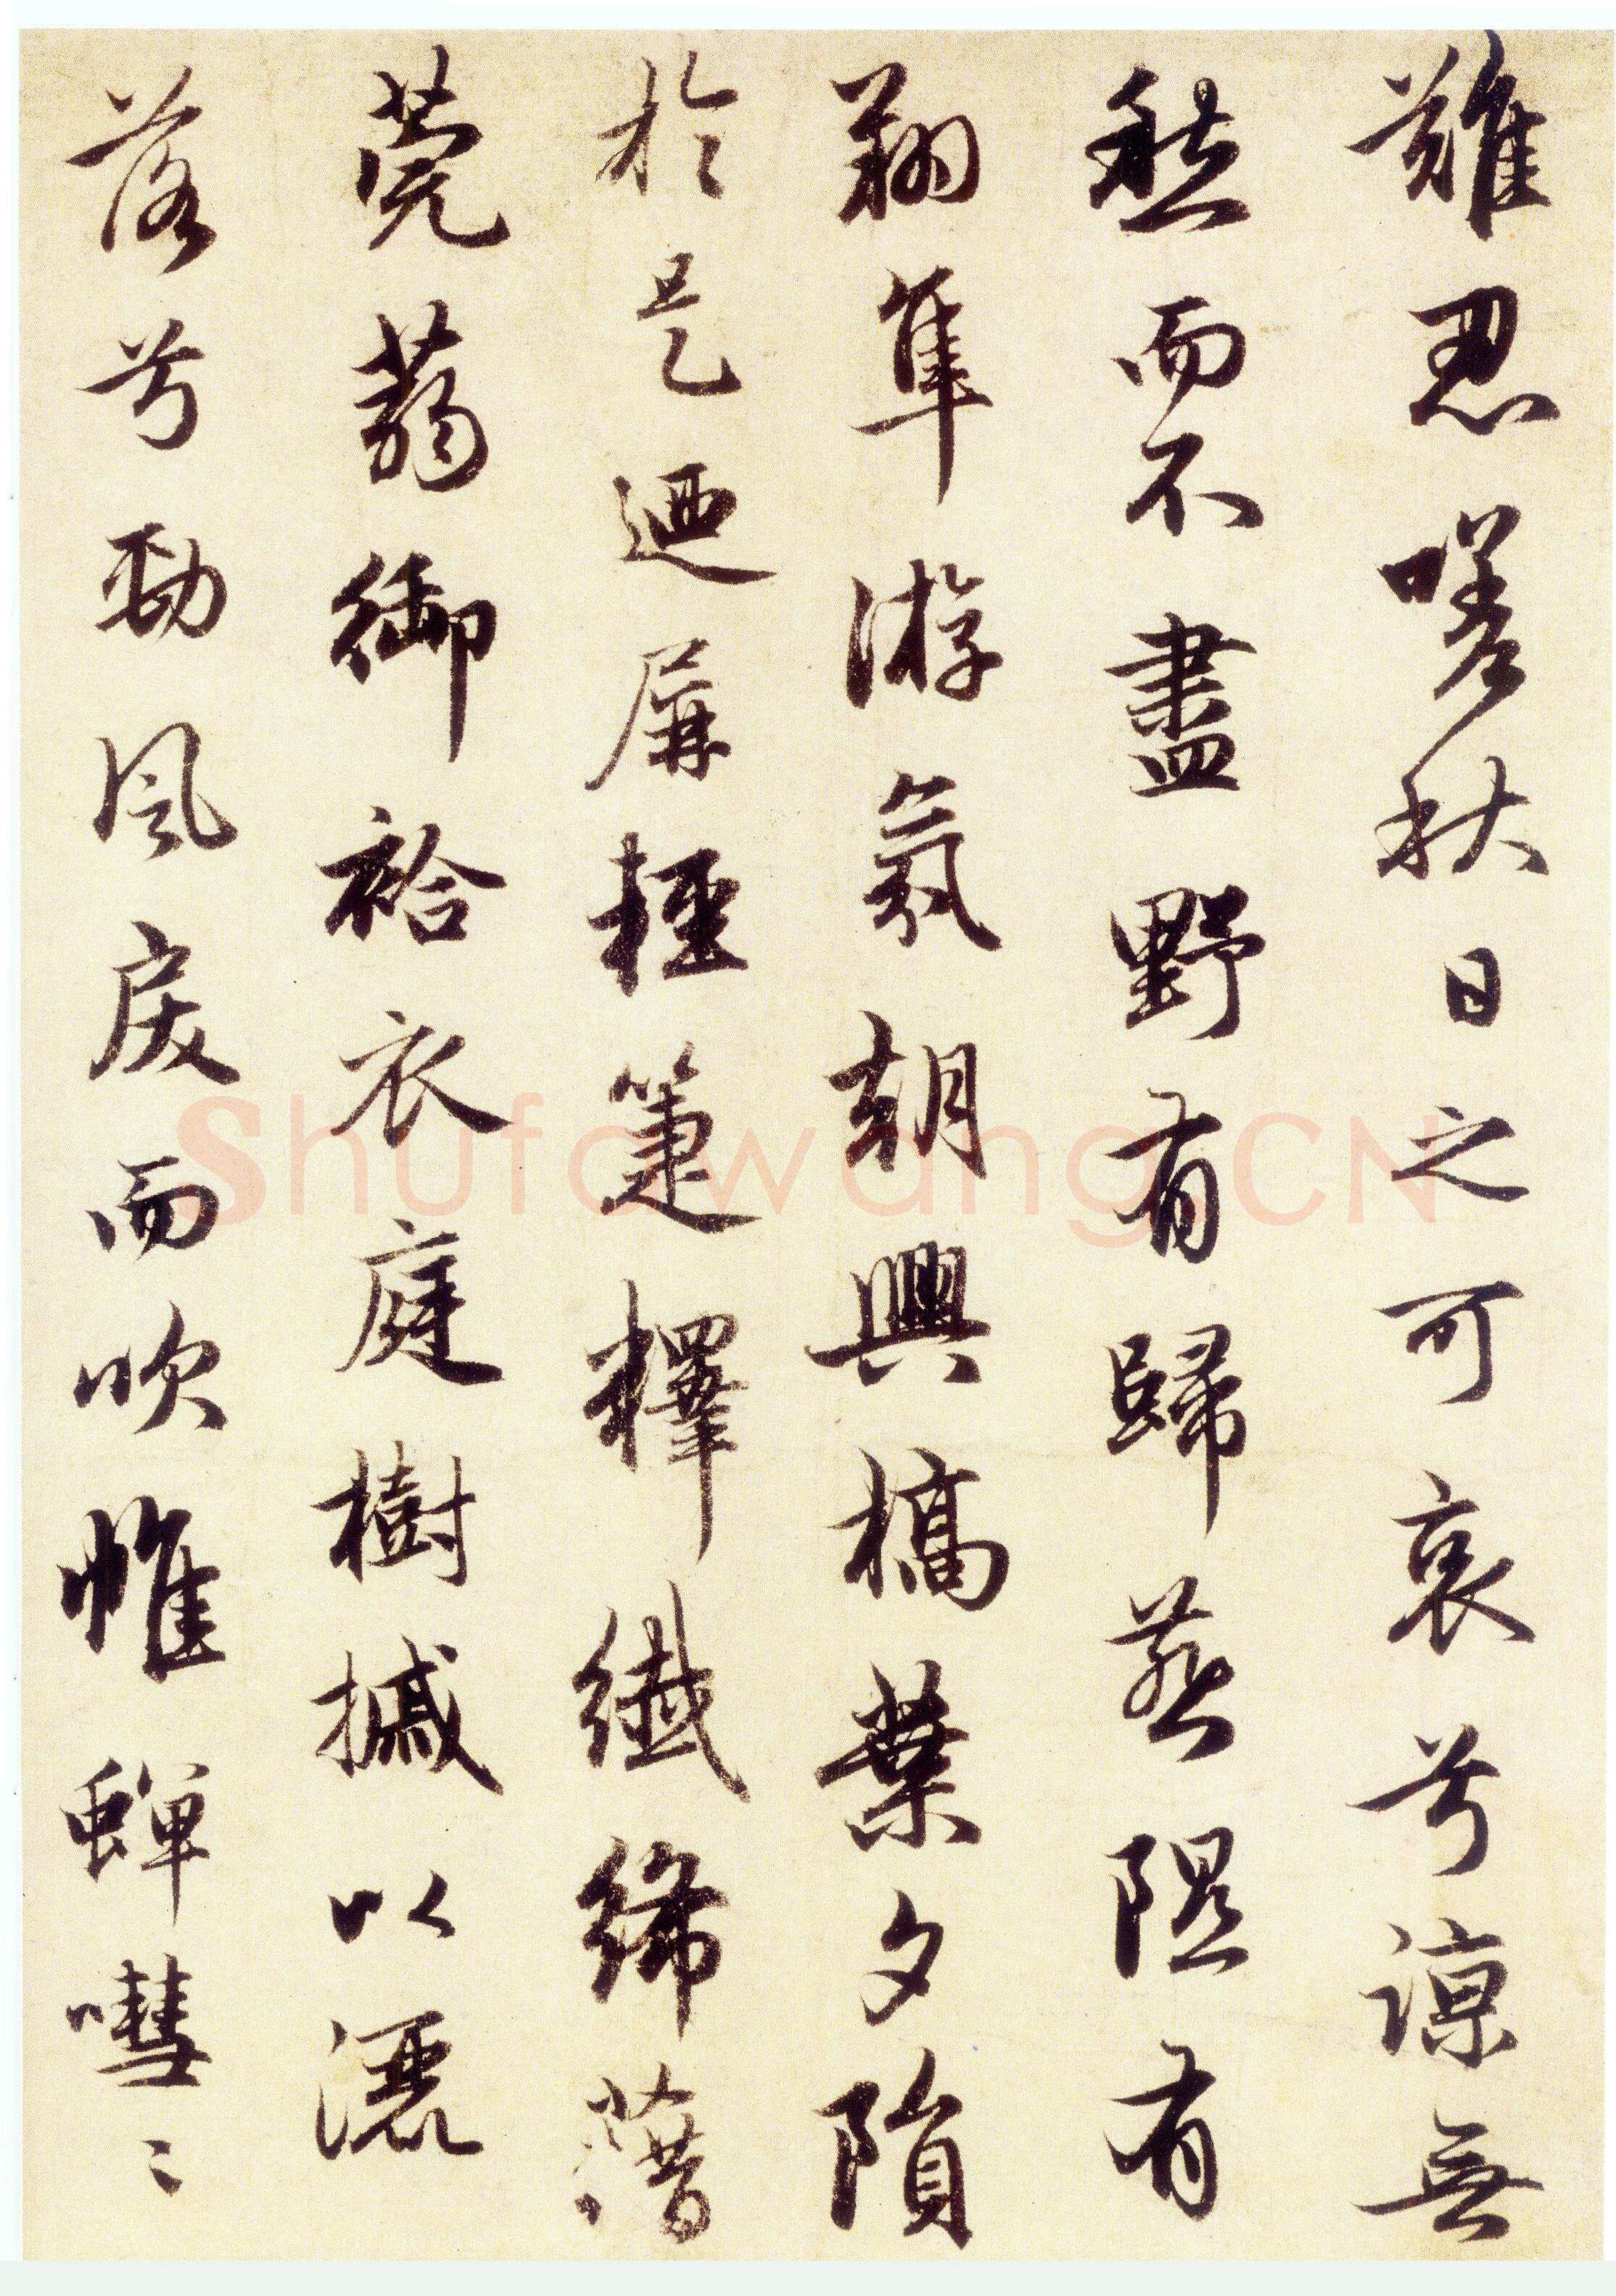 難忍嗟秋日之可哀兮諒無
愁而不盡野有歸燕隰有
翔隼游氛朝興槁葉夕隕
於是迺屏輕箑釋纖絺藉
莞蒻御袷衣庭樹摵以灑
落兮勁風戾而吹帷蟬嘒〻
ShufawangCN